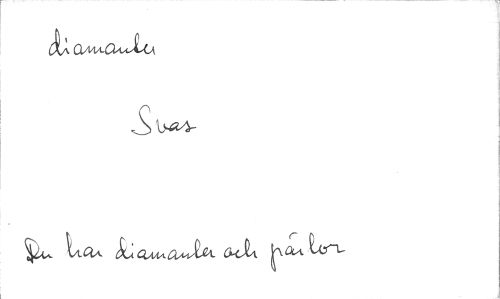 diamanter
Svas
Du har diamanter och pärlor